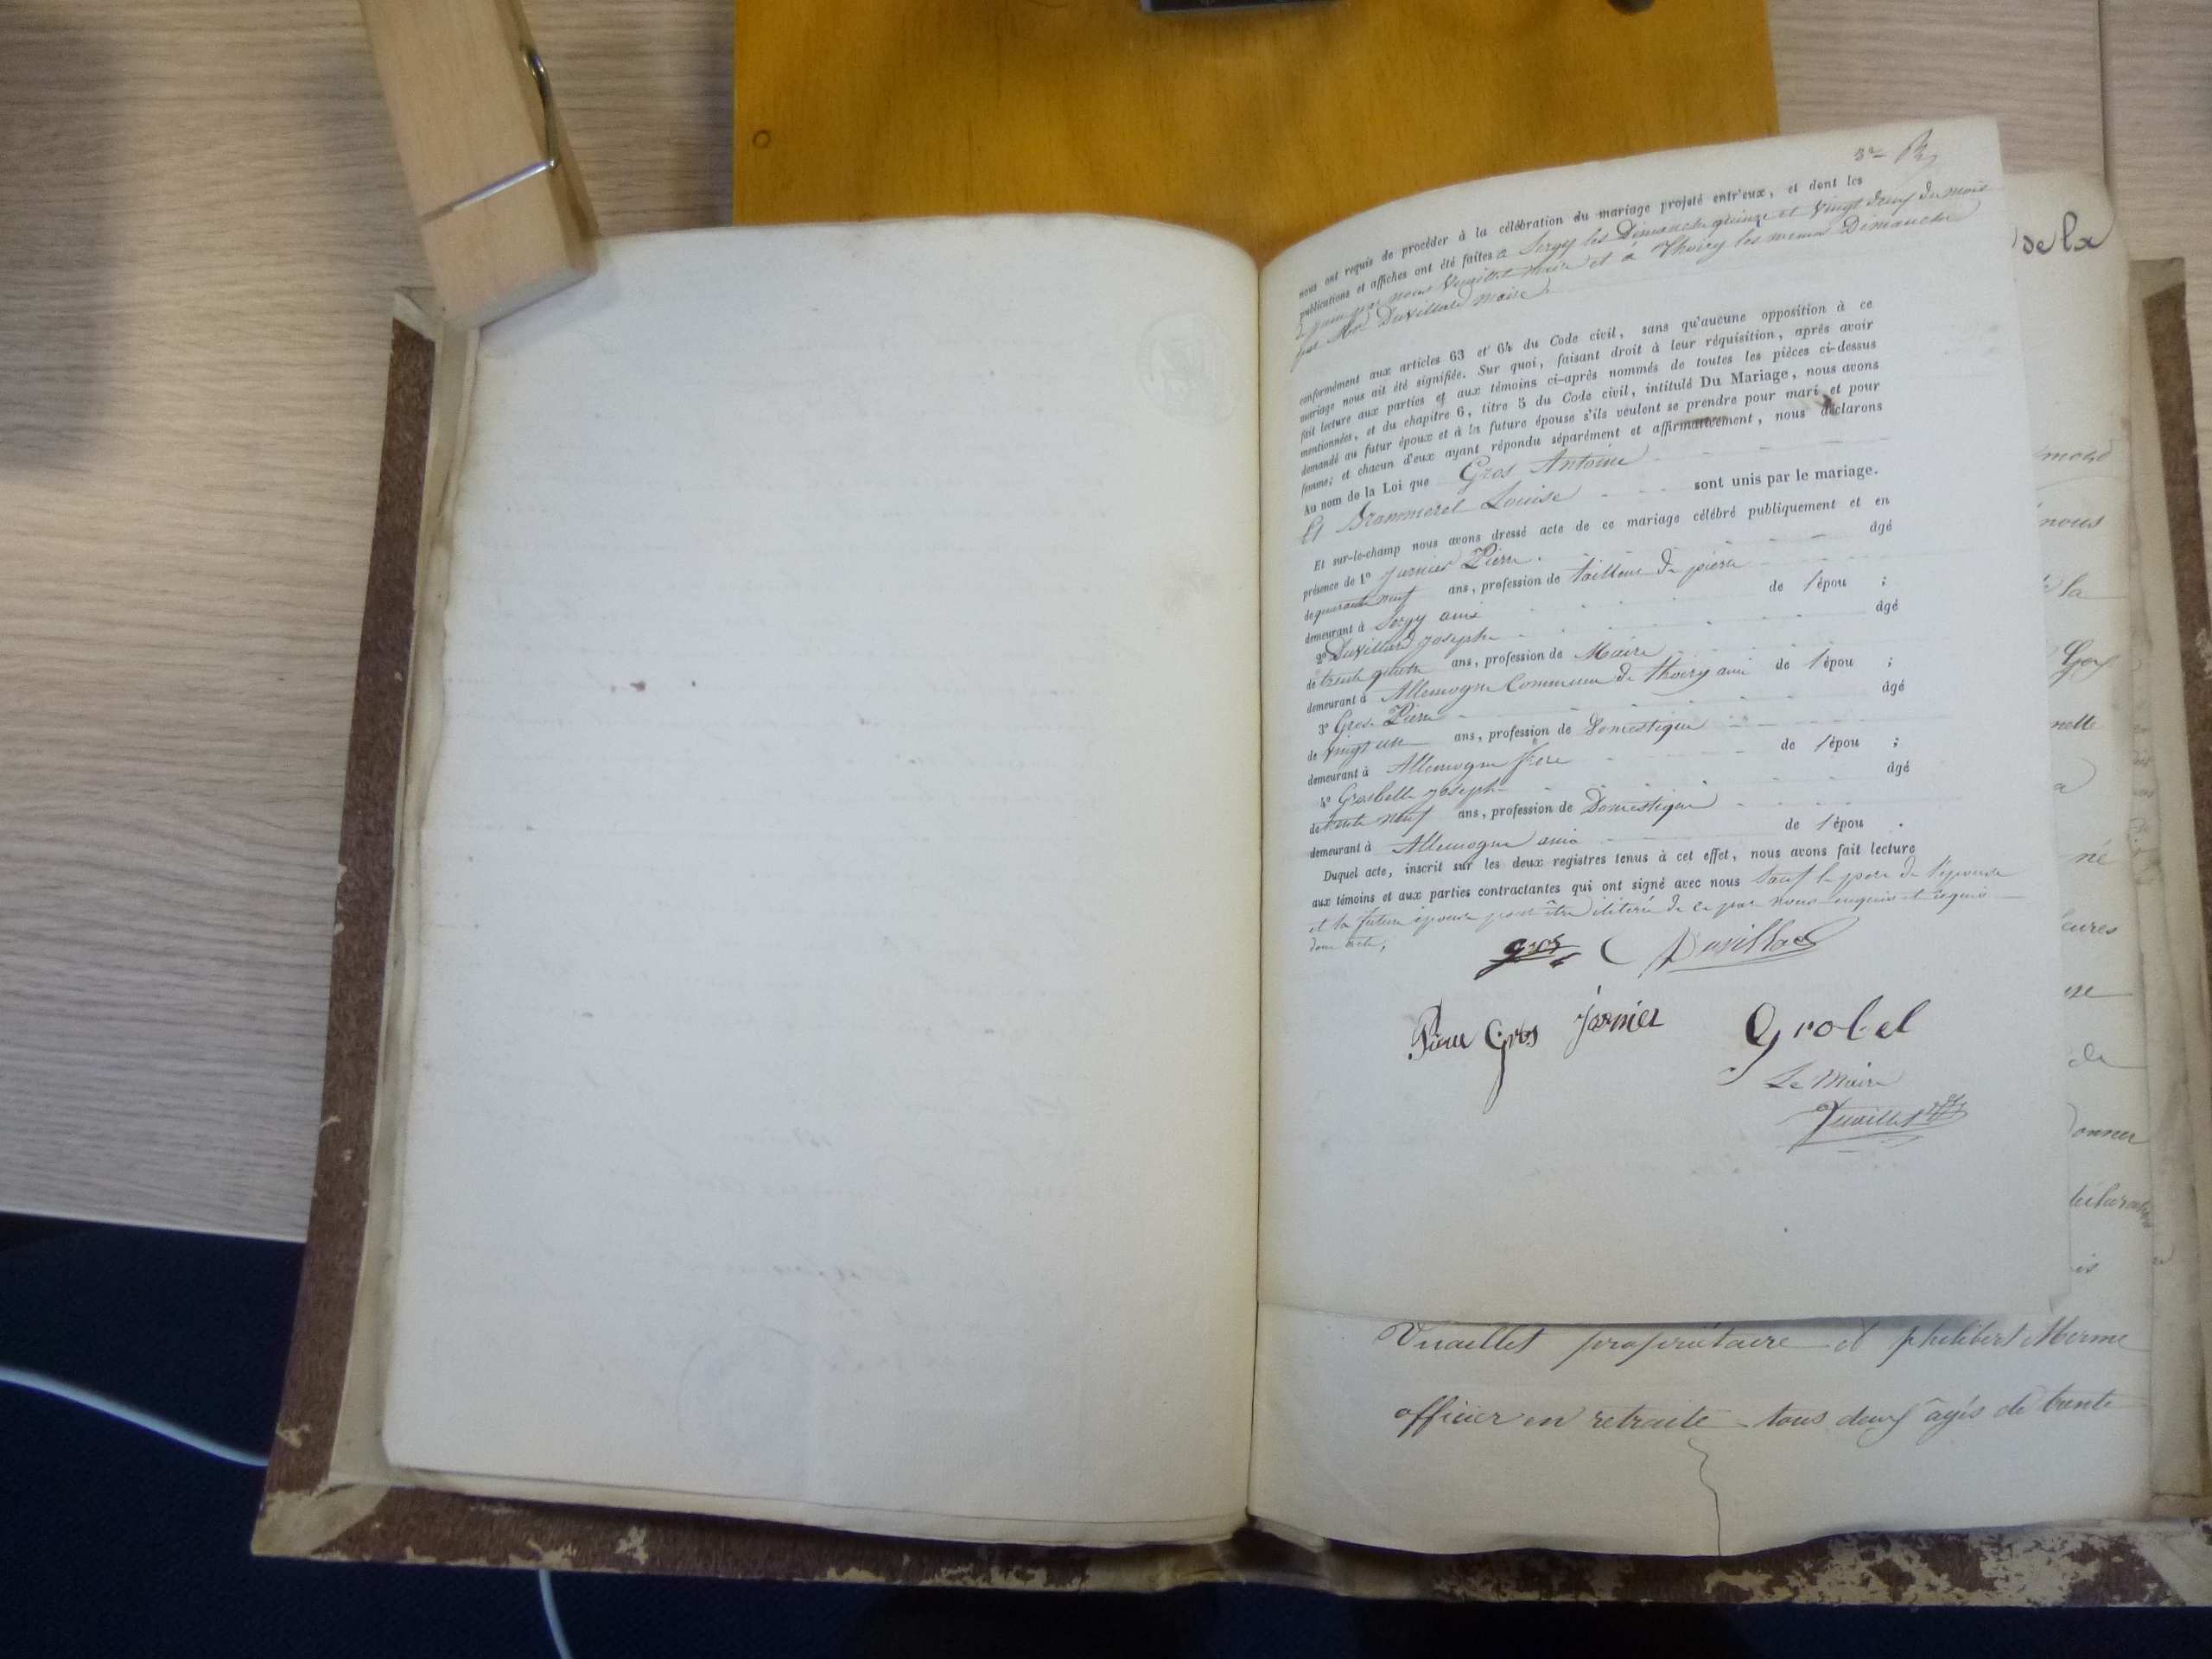 3e
nous ont requis de procéder à la célébration du mariage projeté entr'eux, et dont les
publications et affiches ont été faites à Sergy les Dimanche quinze et Vingt deux du mois
par nous Vuaillet maire et à Thoiry les meme Dimanche
par Mr Duvillard maire
conformément aux articles 63 et 64 du Code civil, sans qu'aucune opposition à ce
mariage nous ait été signifiée. Sur quoi, faisant droit à leur réquisition, après avoir
fait lecture aux parties et aux témoins ci-après nommés de toutes les pièces ci-dessus
mentionnées, et du chapitre 6, titre 5 du Code civil, intitulé Du Mariage, nous avons
demandé au futur époux et à la future épouse s'ils veulent se prendre pour mari et pour
femme; et chacun d'eux ayant répondu séparément et affirmativement, nous déclarons
Au nom de la Loi que Gros Antoine
Et Brammerel Louise sont unis par le mariage.
Et sur-le-champ nous avons dressé acte de ce mariage célébré publiquement et en
présence de 1° Jurnier Pierre âgé
de quarante neuf ans, profession de tailleur de pierre
demeurant à Sergy ami de l'épou ;
2° Duvillard Joseph âgé
de trente quatre ans, profession de Maire
demeurant à Allemogne Commune de thoiry ami de l'épou ;
3° Gros Pierre âgé
de vingt un ans, profession de Domestique
demeurant à Allemogne frère de l'épou ;
4° Grosbelle Joseph âgé
de trente neuf ans, profession de Domestique
demeurant à Allemogne ami de l'épou .
Duquel acte, inscrit sur les deux registres tenus à cet effet, nous avons fait lecture
aux témoins et aux parties contractantes qui ont signé avec nous Sauf le père de l'épouse
et la future épouse pour être iliteré de ce par nous enquis et requis
dont acte,
gros Duvillard
Pierre Gros Jarnier Grobel
Le Maire
Vuaillet
de la
nous
la
nelle
a
né
eures
de
onner
is
Vuaillet propriétaire et philibert Merme
officier en retraite tous deux âgés de trente